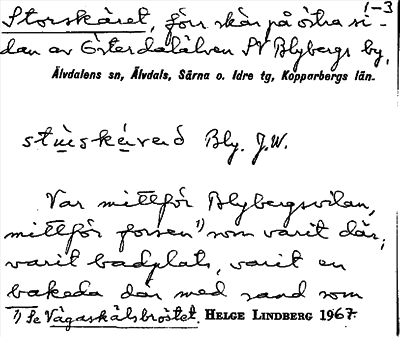 1-3
Storskäret, förr skär på östra si-
dan av Österdalälven SV Blybergs by,
Älvdalens sn, Älvdals, Särna o. Idre tg, Kopparbergs län.
Bly. J.W.
Var mittför Blybergsvilan,
mittför forsen 1) som varit där,
varit badplats, varit en
bakeda där med sand som
1) Se Vågaskålsbröstet. HELGE LINDBERG 1967.